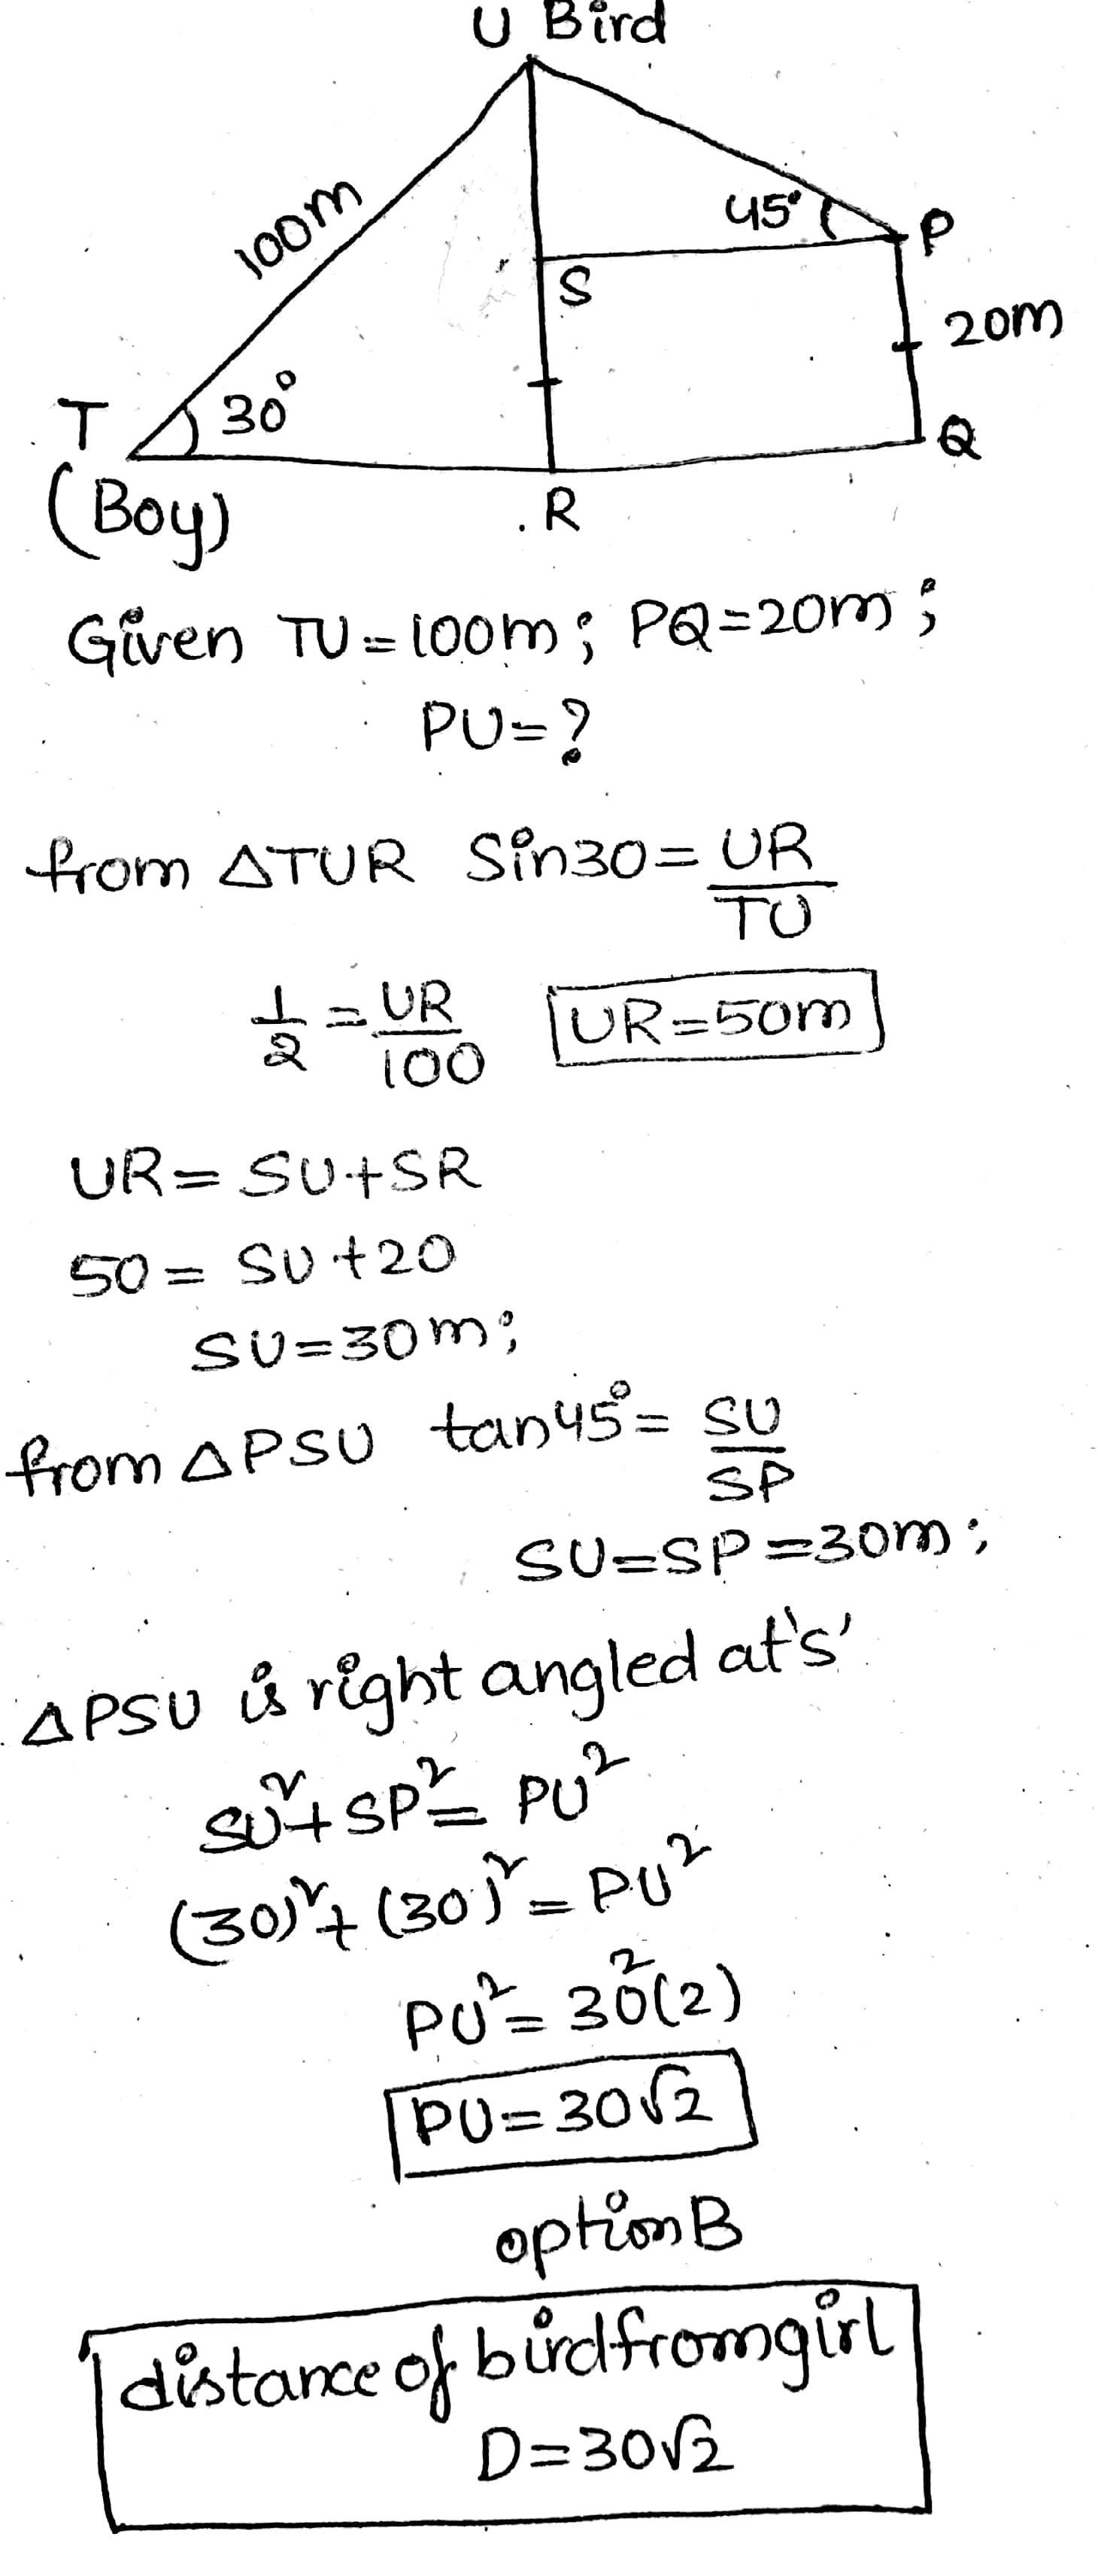 U Bird
100m
45°
P
S
20m
T
30°
Q
(Boy)
.R
Given TU=100m; PQ=20m;
PU=?
from △TUR Sin30=UR/TU
1/2=UR/100 UR=50m
UR=SU+SR
50=SU+20
SU=30m;
from △PSU tan45°=SU/SP
SU=SP=30m;
△PSU is right angled at 's'
SU²+SP²=PU²
(30)²+(30)²=PU²
PU²=30²(2)
PU=30√2
option B
distance of bird from girl
D=30√2